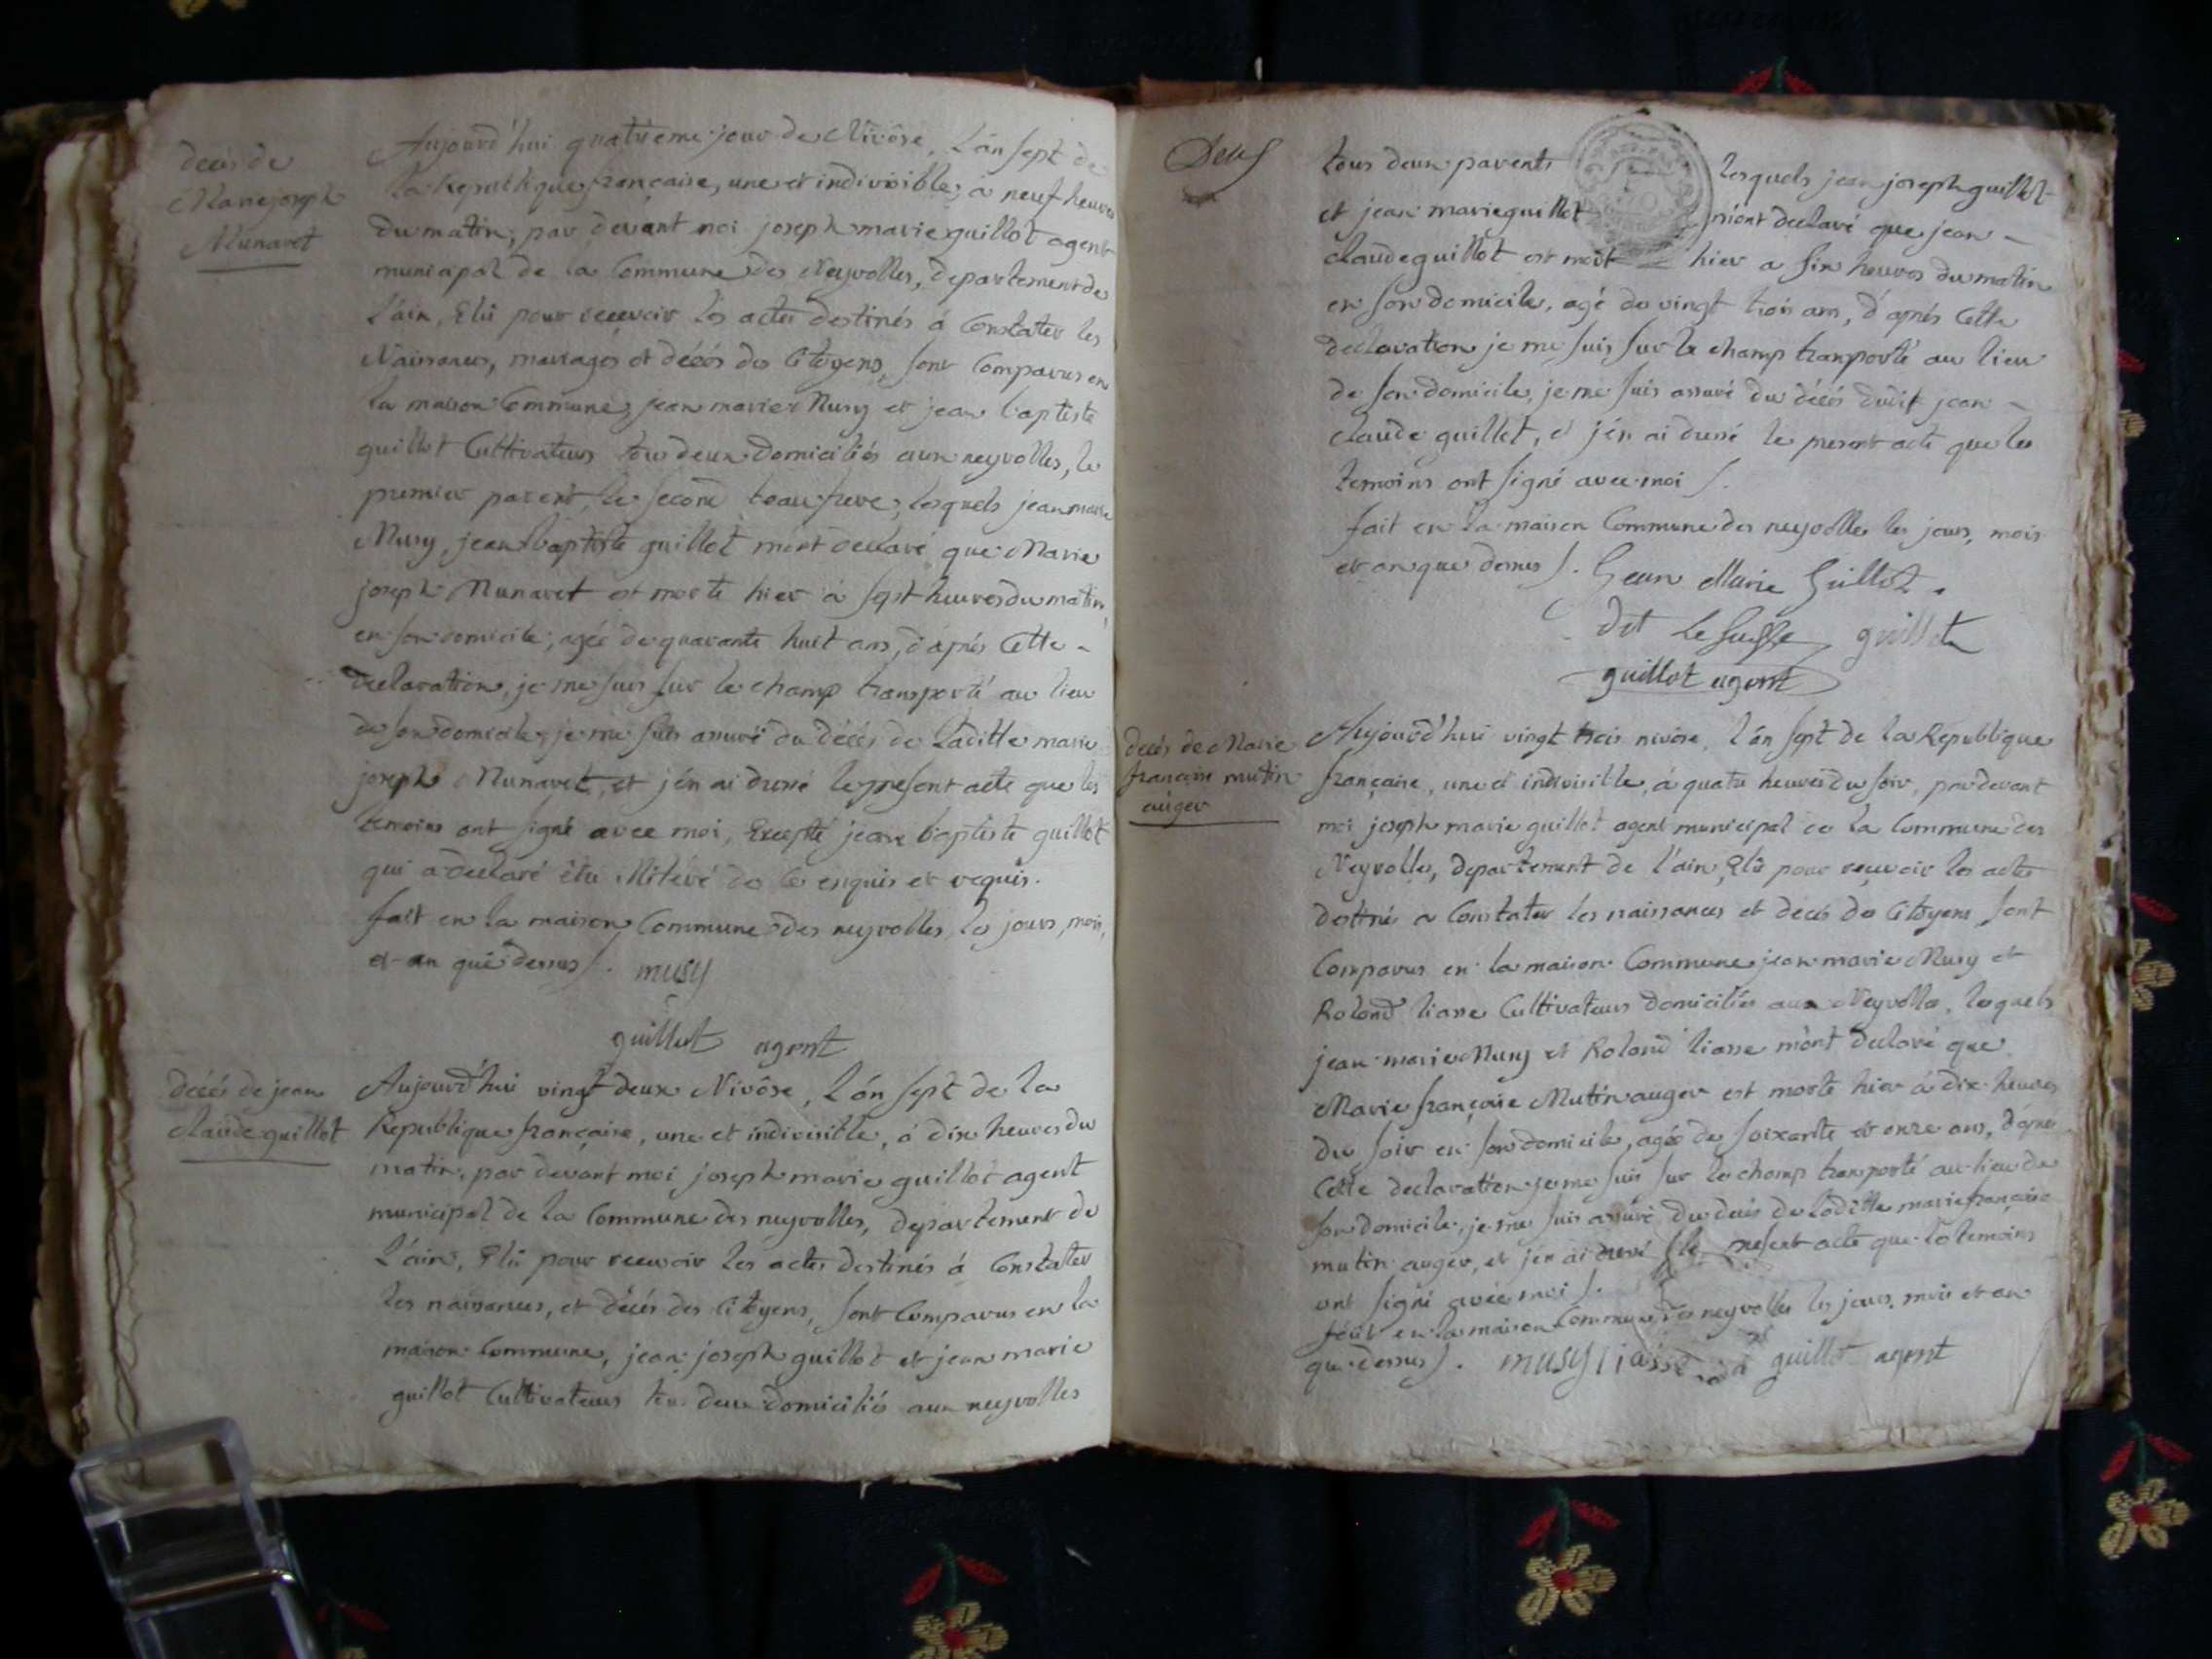 décès de
Marie joseph
Munaret
Aujourd'hui quatrieme jour de Nivôse, L'an sept de
la Republique française, une et indivisible, à neuf heures
du matin, par devant moi joseph marie guillot agent
municipal de la Commune des Neyrolles, departement de
l'ain, Elû pour recevoir les actes destinés à Constater les
Naissances, mariages et décés des Citoyens, sont Comparus en
la maison Commune, jean marie Musy et jean baptiste
guillot Cultivateurs tou deux Domiciliés aux neyrolles, le
premier parent, le second beaufrere, lesquels jean marie
Musy, jean baptiste guillot m'ont déclaré que Marie
joseph Munaret est morte hier à sept heures du matin
en son domicile, agée de quarante huit ans, d'après Cette
declaration, je me suis sur le champ transporté au lieu
de son domicile, je me suis assuré du décés de Laditte marie
joseph Munaret, et j'en ai dressé le present acte que les
temoins ont signé avec moi, Excepté jean baptiste guillot
qui a declaré être illitéré de Ce enquis et requis.
fait en la maison Commune des neyrolles, les jours, mois,
et an que dessus /. musy
guillot agent
décés de jean
claude guillot
Aujourd'hui vingt deux Nivôse, L'an sept de la
Republique française, une et indivisible, à dix heures du
matin, par devant moi joseph marie guillot agent
municipal de la Commune des neyrolles, departement de
L'ain, Elû pour recevoir les actes destinés à Constater
les naissances, et décés des Citoyens, sont Comparus en la
maison Commune, jean joseph guillot et jean marie
guillot Cultivateurs tou deux domiciliés aux neyrolles
tous deux parents lesquels jean joseph guillot
et jean marie guillot m'ont declaré que jean
claude guillot est mort hier a six heures du matin
en son domicile, agé de vingt trois ans, d'aprés Cette
declaration je me suis sur le champ tranporté au lieu
de son domicile, je me suis assuré du décés dudit jean
claude guillot, et j'en ai dressé le present acte que les
temoins ont signé avec moi /.
fait en la maison Commune des neyrolles les jours, mois
et an que dessus /. Jean Marie Guillot.
dit Le suisse guillot
guillot agent
decés de Marie
française mutin
auger
Aujourd'hui vingt trois nivôse, L'an sept de la Republique
française, une et indivisible, à quatre heures du soir, par devant
moi joseph marie guillot agent municipal de la Commune des
Neyrolles, departement de l'ain, Elû pour recevoir les actes
destinés a Constater les naissances et décés des Citoyens, sont
Comparus en la maison Commune jean marie Musy et
Roland liasse Cultivateurs domiciliés aux Neyrolles, lesquels
jean marie Musy et Roland liasse m'ont declaré que
Marie française Mutin auger est morte hier à dix heures
du soir en son domicile, agée de soixante et onze ans, d'aprés
Cette declaration je me suis sur le champ tranporté au lieu de
son domicile, je me suis assuré du decés de Laditte marie française
mutin auger, et j'en ai dressé le present acte que les temoins
ont signé avec moi /.
fait en la maison Commune des neyrolles les jours, mois et an
que dessus /. musy liasse guillot agent